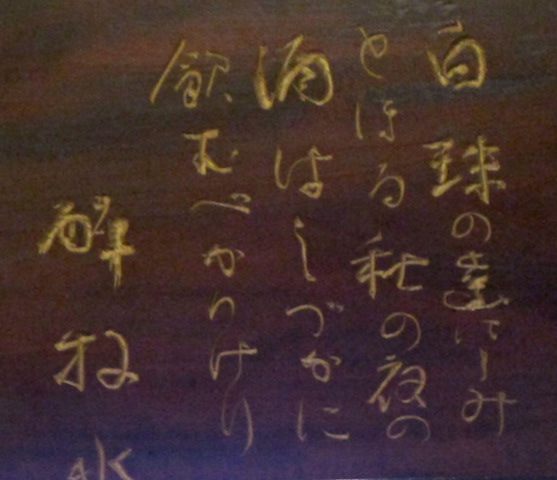 白珠の歯にしみ
とほる秋の夜の
酒はしづかに
飲むべかりけり
酔牧水